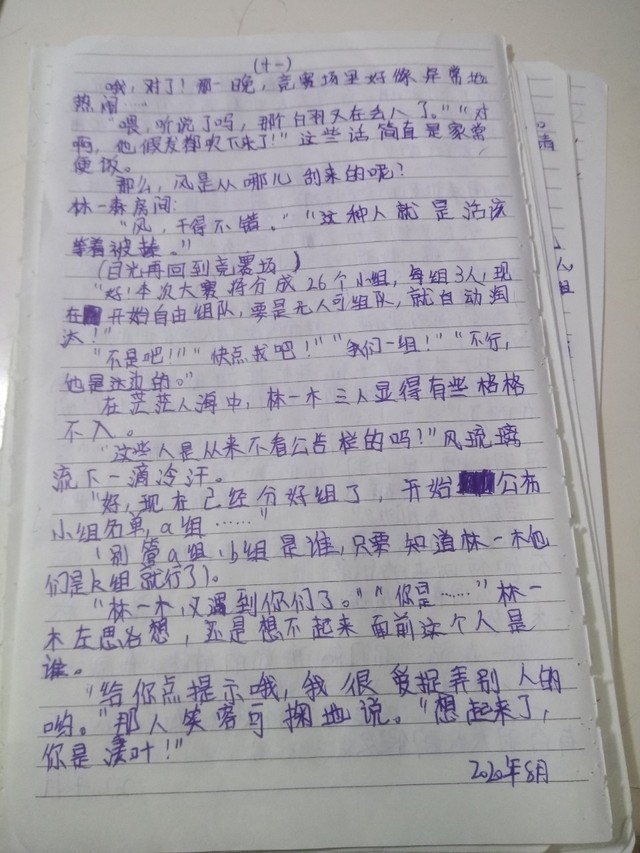 (十一)
哦，对了！那一晚，竞赛场里好像异常地
热闹……
“喂，听说了吗，那个白羽又在去八了。”“对
啊，他假发都吹下来了！”这些话简直是家常
便饭。
那么，风是从哪儿刮来的呢？
林一森房间：
“风，干得不错。”“这种人就是活该
等着被揍。”
(目光再回到竞赛场)
“好！本次大赛将分成26个小组，每组3人，现
在开始自由组队，要是无人可组队，就自动淘
汰！”
“不是吧！！”“快点我吧！”“我们一组！”“不行，
他是这边的。”
在茫茫人海中，林一木三人显得有些格格
不入。
“这些人是从来不看公告栏的吗！”风琉璃
流下一滴冷汗。
“好，现在已经分好组了，开始公布
小组名单，a组……”
(别管a组、b组是谁，只要知道林一木他
们是k组就行了)。
“林一木，又遇到你们了。”“你是……”林一
木左思右想，还是想不起来面前这个人是
谁。
“给你点提示哦，我很爱捉弄别人的
哟。”那人笑容可掬地说。“想起来了，
你是叶！”
2020年8月